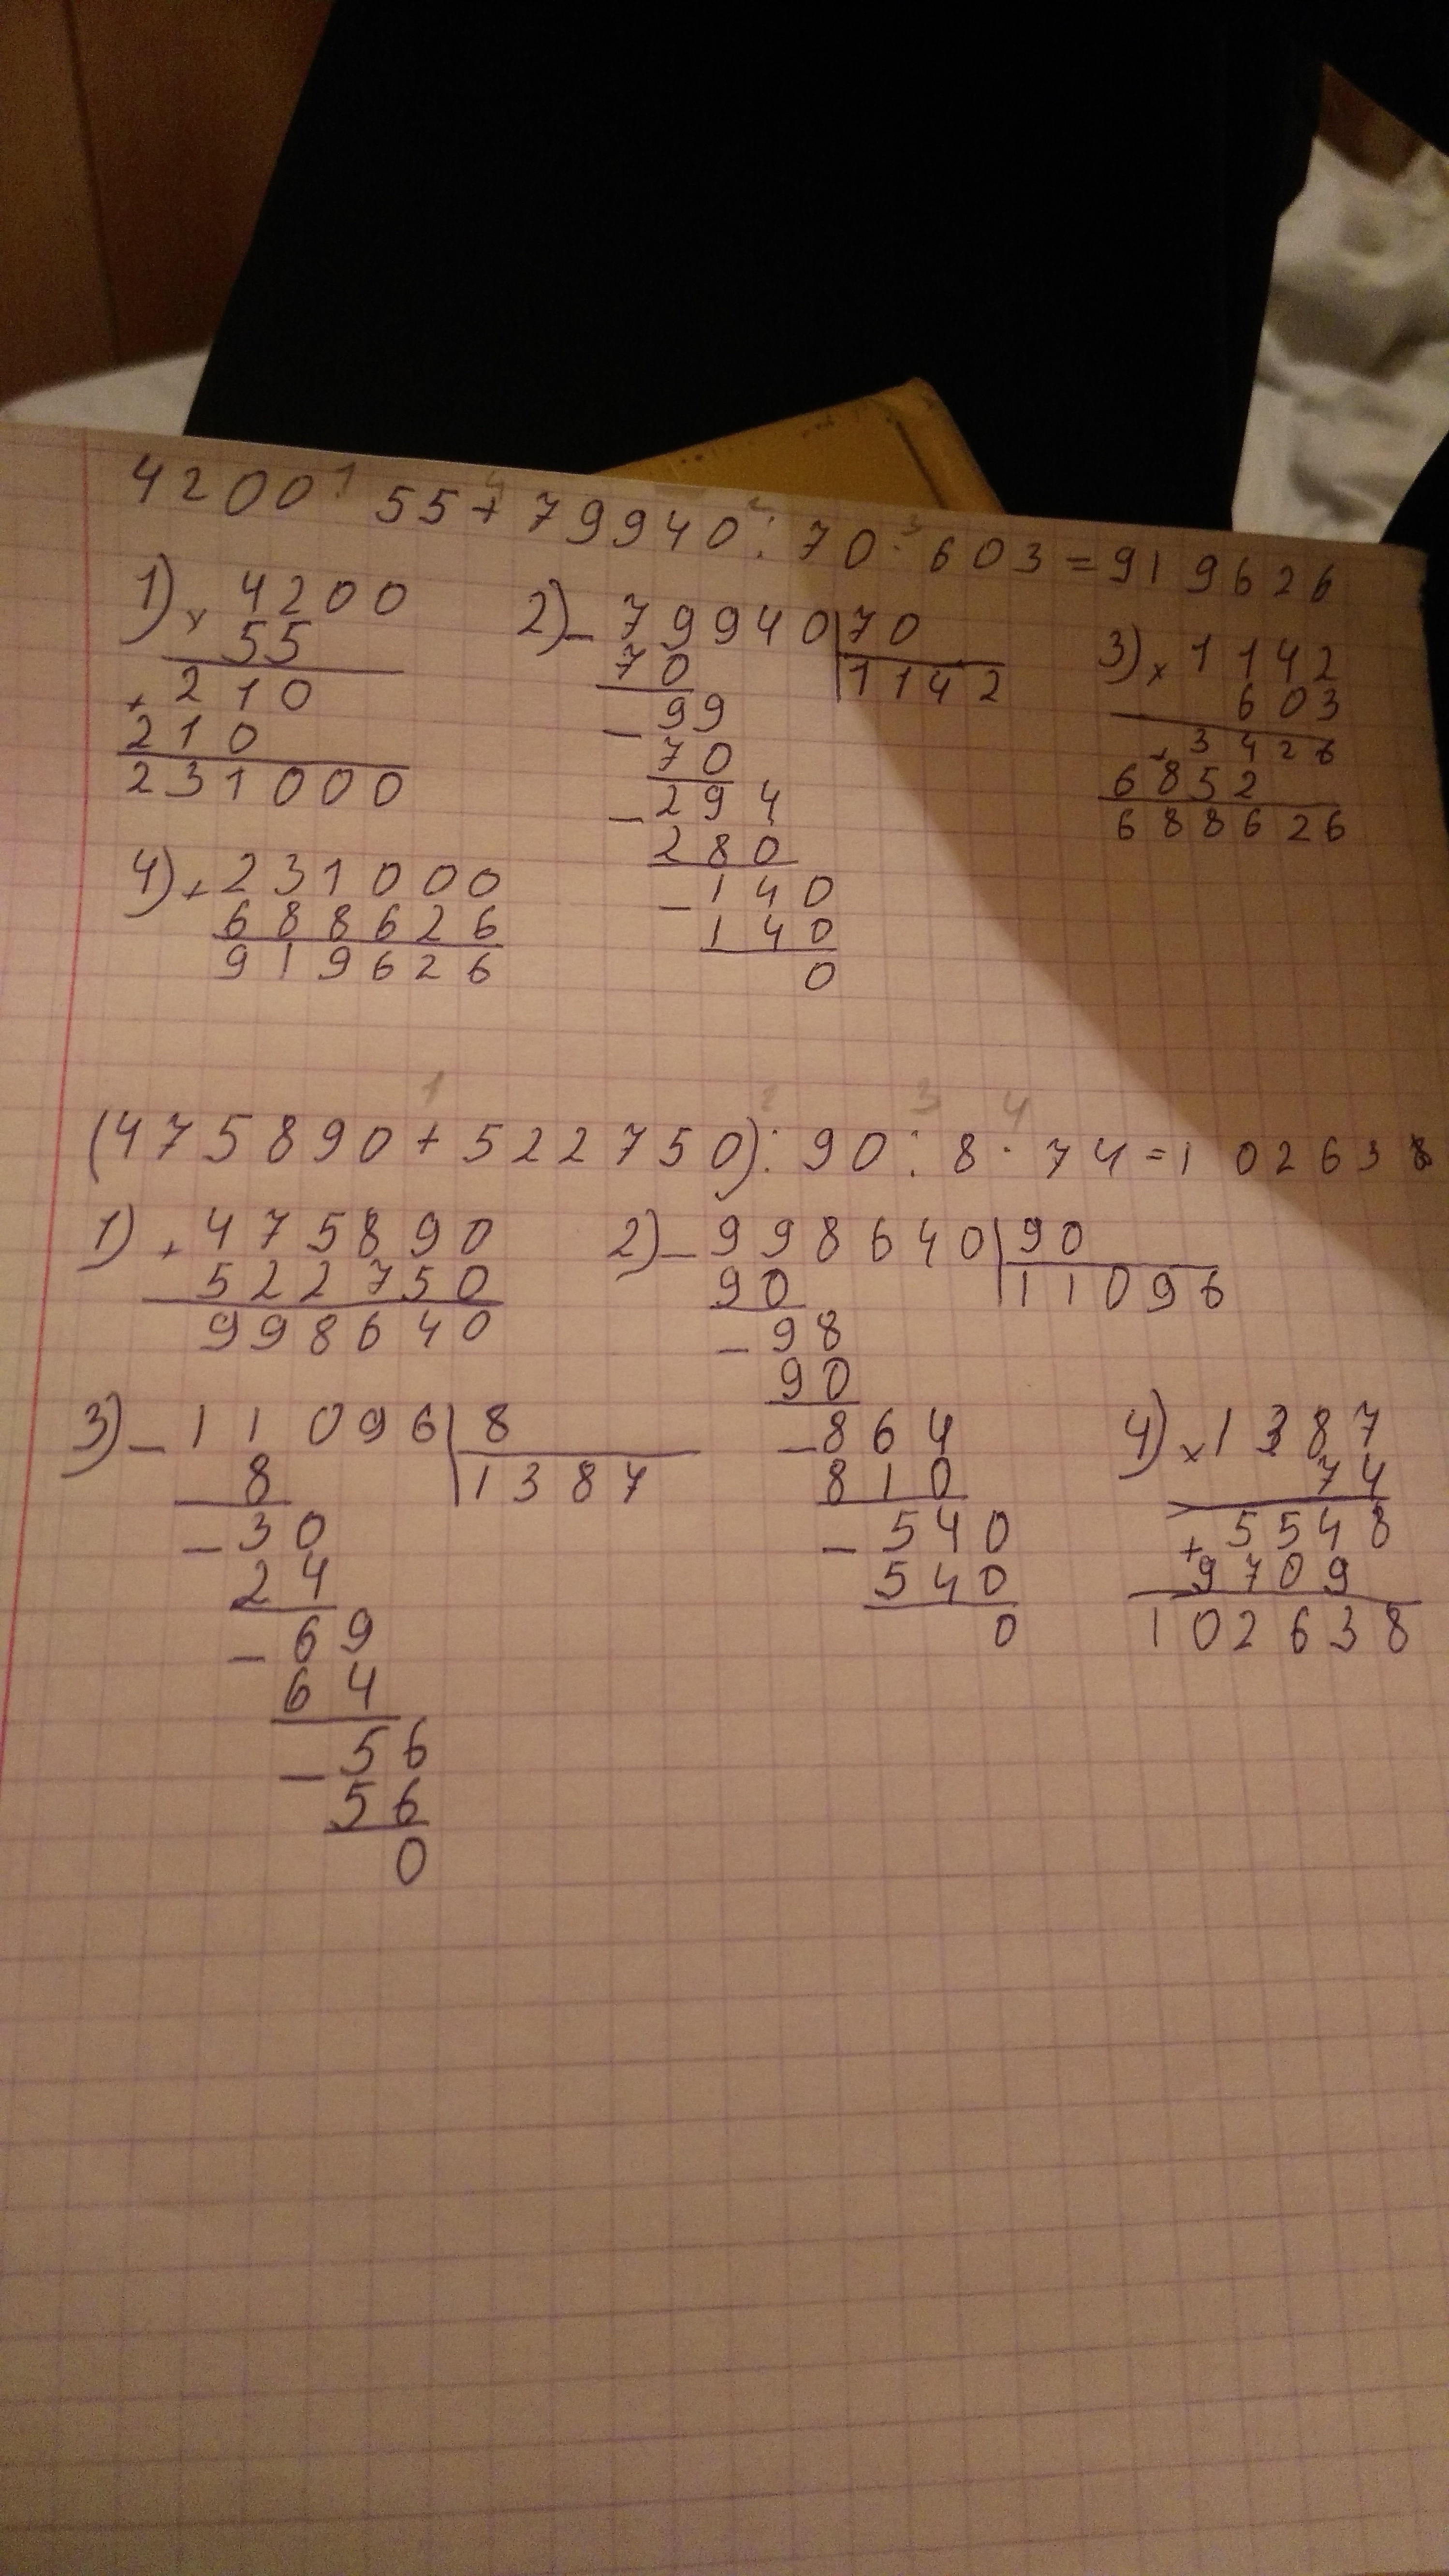 4200 · 55 + 79940 : 70 · 603 = 919626
1) × 4200
55
+ 210
210
231000
2) - 79940 | 70
70 | 1142
- 99
70
- 294
280
- 140
140
0
3) × 1142
603
+ 3426
6852
688626
4) + 231000
688626
919626
1 2 3 4
(475890 + 522750) : 90 : 8 · 74 = 102638
1) + 475890
522750
998640
2) - 998640 | 90
90 | 11096
- 98
90
- 864
810
- 540
540
0
3) - 11096 | 8
8 | 1387
- 30
24
- 69
64
- 56
56
0
4) × 1387
74
+ 5548
9709
102638